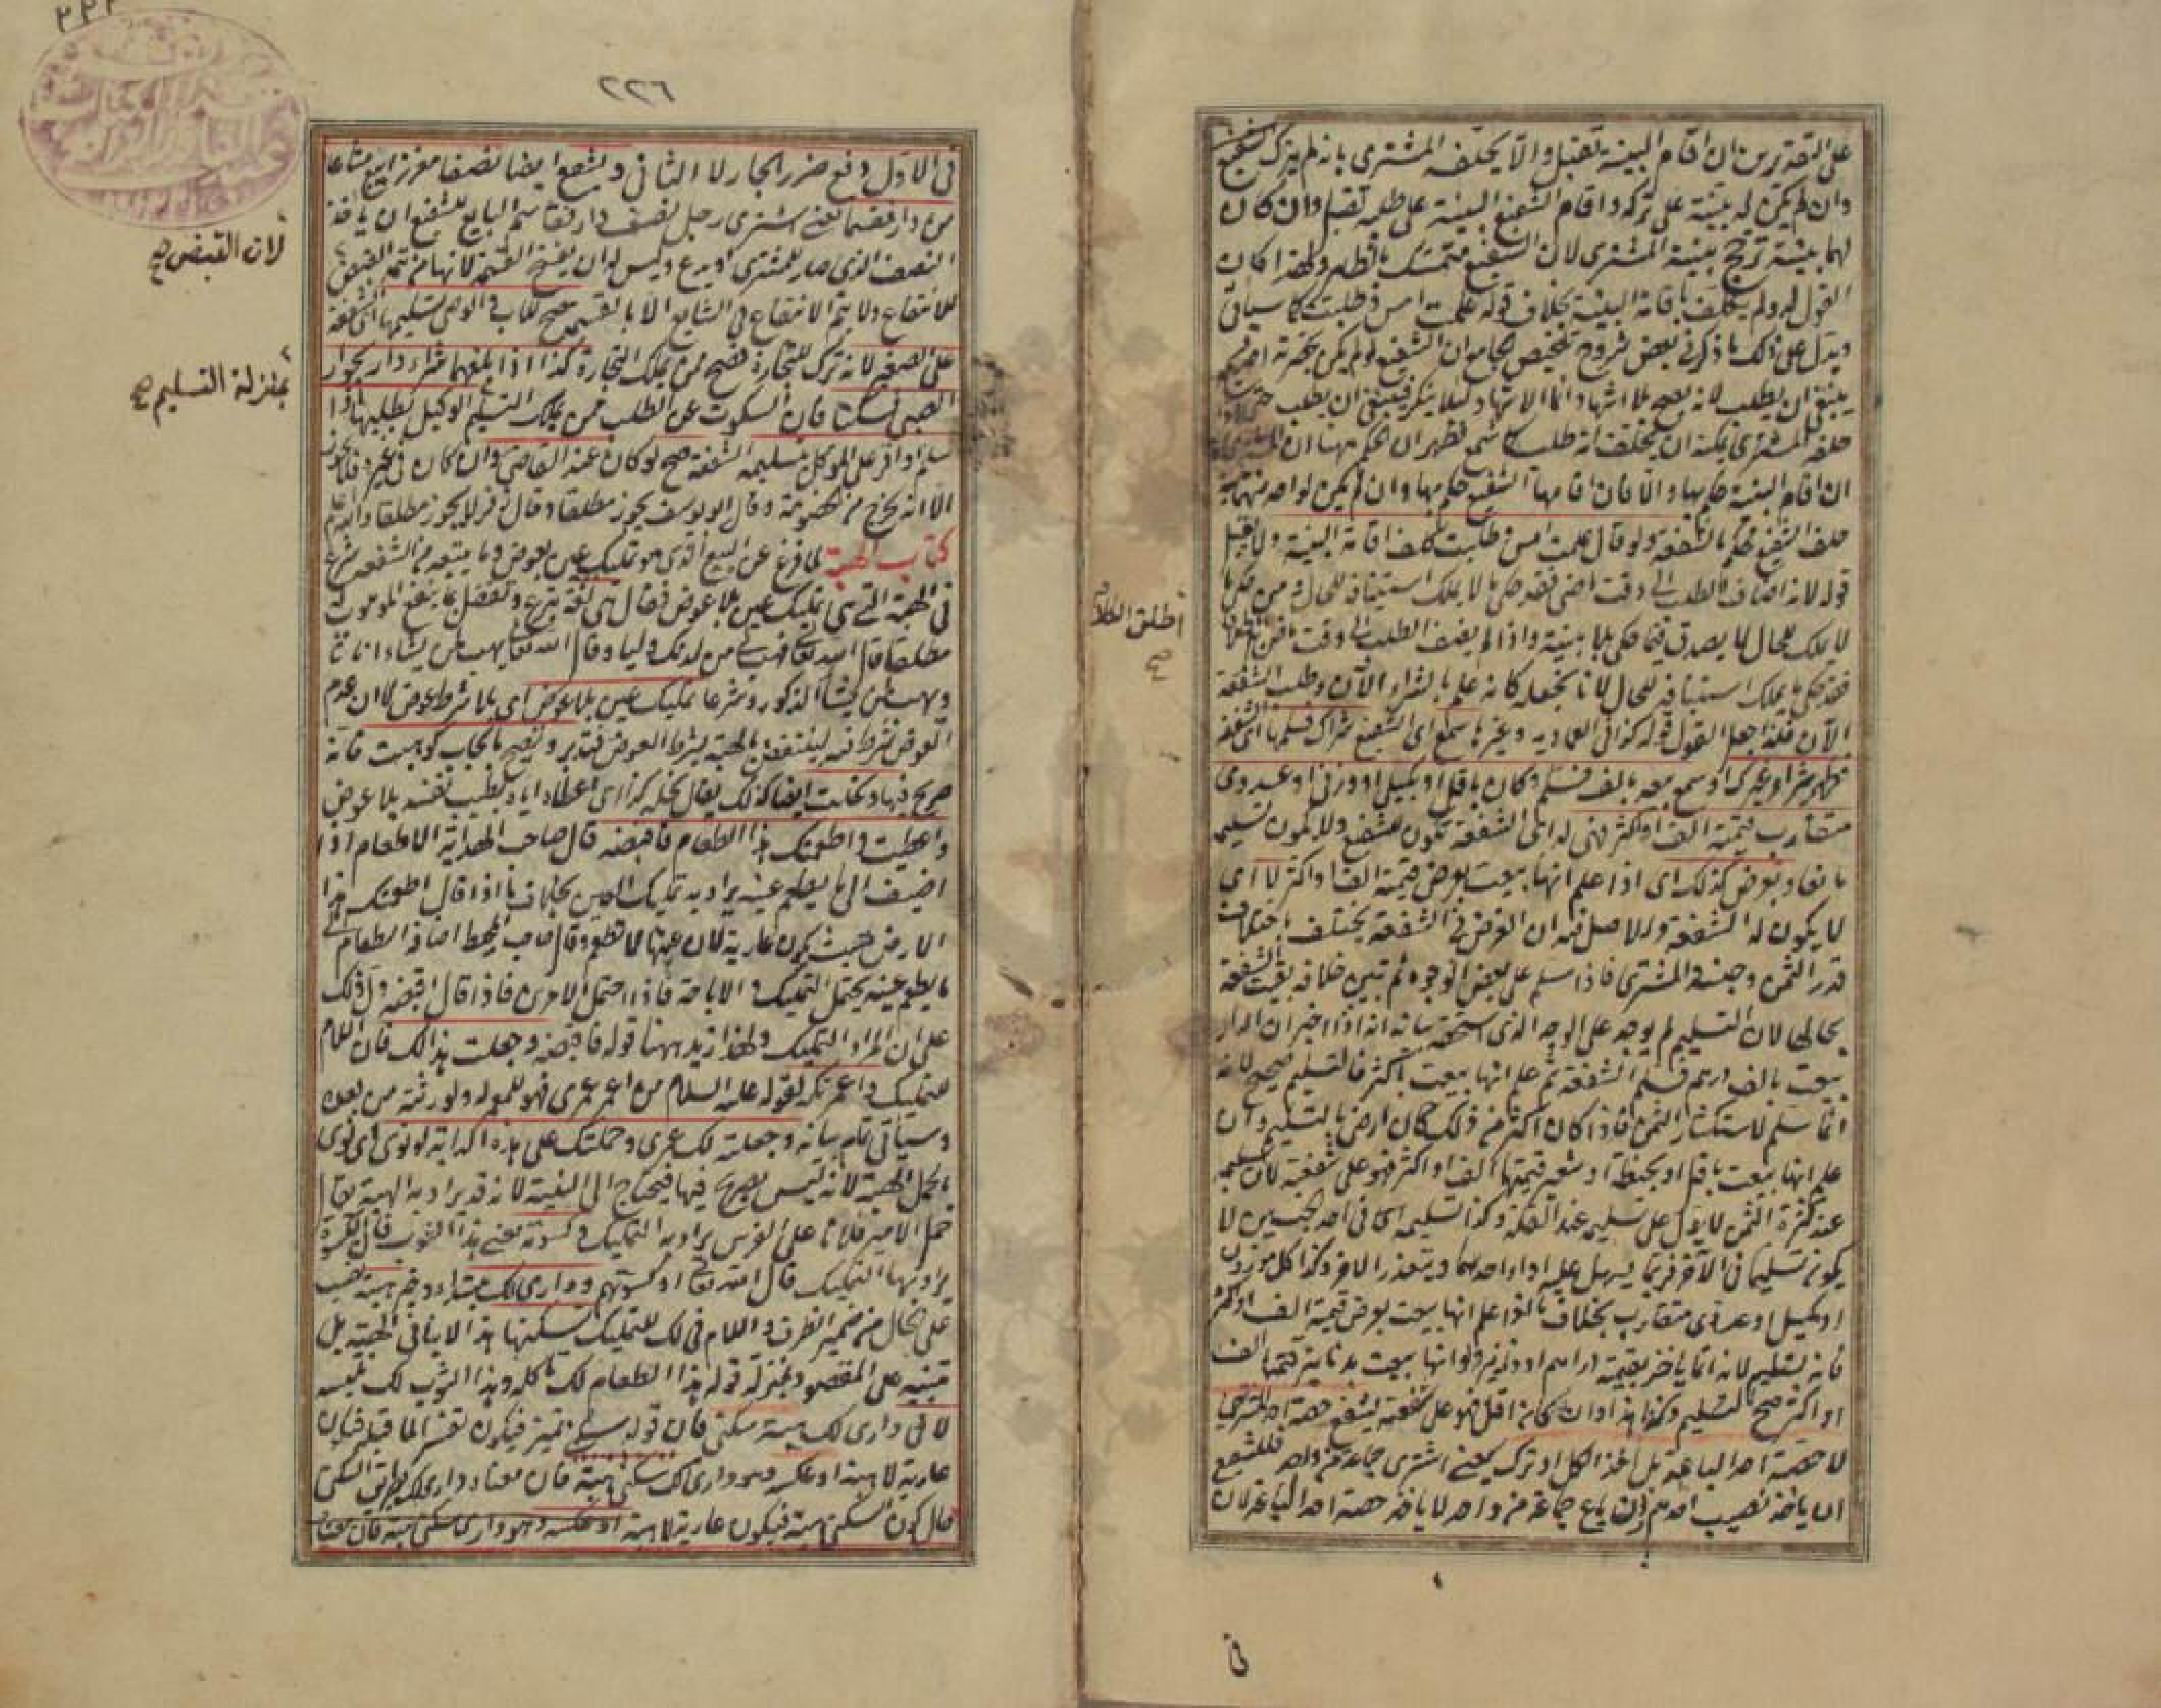 على التقديرين ان اقام البينة تقبل والا يحلف المشتري بانه لم يترك الشفيع
وان لم يكن له بينة على تركه واقام الشفيع البينة على طلبه تقبل وان كان
لهما بينة ترجح بينة المشتري لان الشفيع متمسك بالظاهر ولهذا كان
القول له ولم يكلف باقامة البينة بخلاف قوله علمت امس وطلبت كما سيأتي
ويدل على ذلك ما ذكر في بعض شروح تلخيص الجامع ان الشفيع لو لم يكن بحضرته احد
ينبغي ان يطلب لانه يصح بلا اشهاد انما الاشهاد لئلا ينكر فينبغي ان يطلب حتى
حلفه المشتري يمكنه ان يحلف انه طلب كما سمع فظهر ان الحكم هنا ان
ان اقام البينة حكم بها والا فان اقامها الشفيع حكم بها وان لم يكن لواحد منهما بينة
حلف الشفيع حكم بالشفعة ولو قال علمت امس وطلبت كلف اقامة البينة ولا يقبل
قوله لانه اضاف الطلب الى وقت ماض فقد حكى ما لا يملك استينافه للحال ومن حكى ما
لا يملك للحال لا يصدق فيما حكى بلا بينة واذا لم يضف الطلب الى وقت ماض
فقد حكى ما يملك استينافه للحال لانا نجعله كانه علم بالشراء الآن وطلب الشفعة
الآن فلهذا جعل القول قوله كذا في العمادية وغيرها سمع اي الشفيع شراك فسلمها اي الشفعة
فظهر شراء غيرك او سمع بيعه بالف فسلم وكان باقل او بكيلي او وزني او عددي
متقارب قيمته الف او اكثر فهي له اي الشفعة تكون للشفيع ولا يكون تسليمه
مانعا وبعرض كذلك اي اذا علم انها بيعت بعرض قيمته الف او اكثر لا اي
لا يكون له الشفعة والاصل فيه ان الغرض في الشفعة يختلف باختلاف
قدر الثمن وجنسه والمشتري فاذا سلم على بعض الوجوه ثم تبين خلافه بقيت الشفعة
بحالها لان التسليم لم يوجد على الوجه الذي استحقه بيانه انه اذا اخبر ان الدار
بيعت بالف درهم فسلم الشفعة ثم علم انها بيعت باكثر فالتسليم صحيح لانه
انما سلم لاستكثار الثمن فاذا كان اكثر من ذلك كان ارضى بالتسليم وان
علم انها بيعت باقل او بحنطة او شعير قيمتها الف او اكثر فهو على شفعته لان تسليمه
عند كثرة الثمن لا يدل على تسليمه عند القلة وكذا تسليمه في احد الجنسين لا
يكون تسليما في الآخر فربما يسهل عليه اداء احدهما ويتعذر الآخر وكذا كل موزون
او مكيل او عددي متقارب بخلاف ما اذا علم انها بيعت بعرض قيمته الف او اكثر
فانه تسليم لانه انما ياخذ بقيمته دراهم او دنانير ولو انها بيعت بدنانير قيمتها الف
او اكثر صح التسليم وان كانت اقل فهو على شفعته يشفع حصة احد المشترين
لا حصة احد الباعة بل اخذ الكل او ترك يعني اشترى جماعة من واحد فللشفيع
ان ياخذ نصيب احدهم وان باع جماعة من واحد لا ياخذ حصة احد الباعة لان
في
اطلق الطلب
صح
٢٢٦
في الاول دفع ضرر الجار لا الثاني ويشفع ايضا نصفا مفرزا بيع مشاعا
من دار فقسما يعني اشترى رجل نصف دار فقاسم البايع للشفيع ان ياخذ
النصف الذي صار للمشتري او يدع وليس له ان يفسخ القسمة لانها من تتمة القبض
للانتفاع ولا يتم الانتفاع في الشايع الا بالقسمة صح للاب والوصي تسليمها اي الشفعة
على الصغير لانه ترك للتجارة فصح ممن يملك التجارة كذا اذا بلغهما شراء دار بجوار
الصبي فسكتا فان السكوت عن الطلب ممن يملك التسليم الوكيل بطلبها اذا
سلم او اقر على الموكل بتسليمه الشفعة صح لو كان عند القاضي وان كان في غيره فلا يجوز
الا انه يخرج من الخصومة وقال ابو يوسف يجوز مطلقا وقال زفر لا يجوز مطلقا والله اعلم
كتاب الهبة لما فرغ عن البيع الذي هو تمليك عين بعوض وما يتبعه من الشفعة شرع
في الهبة التي هي تمليك عين بلا عوض فقال هي لغة تبرع وتفضل بما ينفع الموهوب له
مطلقا قال الله تعالى فهب لي من لدنك وليا وقال الله تعالى يهب لمن يشاء اناثا
ويهب لمن يشاء الذكور وشرعا تمليك عين بلا عوض اي بلا شرط عوض لا ان عدم
العوض شرط فيه لينتقض بالهبة بشرط العوض فتدبر وتصح بايجاب كوهبت فانه
صريح فيها ونحلت ايضا كذلك يقال نحله كذا اي اعطاه اياه بطيب نفسه بلا عوض
واعطيت واطعمتك هذا الطعام فاقبضه قال صاحب الهداية الاطعام اذا
اضيف الى ما يطعم عينه يراد به تمليك العين بخلاف ما اذا قال اطعمتك هذه
الارض حيث يكون عارية لان عينها لا تطعم وقال صاحب المحيط اضافة الطعام الى
ما يطعم عينه يحتمل التمليك والاباحة فاذا احتمل الامرين فاذا قال اقبضه دل ذلك
على ان المراد التمليك ولهذا زيد ههنا قوله فاقبضه وجعلت هذا لك فان اللام
للتمليك واعمرتكه لقوله عليه السلام من اعمر عمرى فهو للمعمر له ولورثته من بعده
وسيأتي تمام بيانه وجعلته لك عمرى وحملتك على هذه الدابة لو نوى اي نوى
بالحمل الهبة لانه ليس بصريح فيها فيحتاج الى النية لانه قد يراد به الهبة يقال
حمل الامير فلانا على الفرس يراد به التمليك وكسوته يعني هذا الثوب فان الكسوة
يراد بها التمليك قال الله تعالى او كسوتهم وداري لك مبتداء وخبر هبة نصب
على الحال من ضمير الظرف واللام في لك للتمليك تسكنها هذا لا ينافي الهبة بل
تنبيه على المقصود بمنزلة قوله هذا الطعام لك تاكله وهذا الثوب لك تلبسه
لا في داري لك هبة سكنى فان قوله سكنى تمييز فيكون تفسيرا لما قبله فيكون
عارية لا هبة او عكسه وهو داري لك سكنى هبة فان معناه داري لك بطريق السكنى
حال كون السكنى هبة فيكون عارية لا هبة او عكسه وهو داري لك سكنى هبة فان معناه
لان القبض صح
بمنزلة التسليم صح